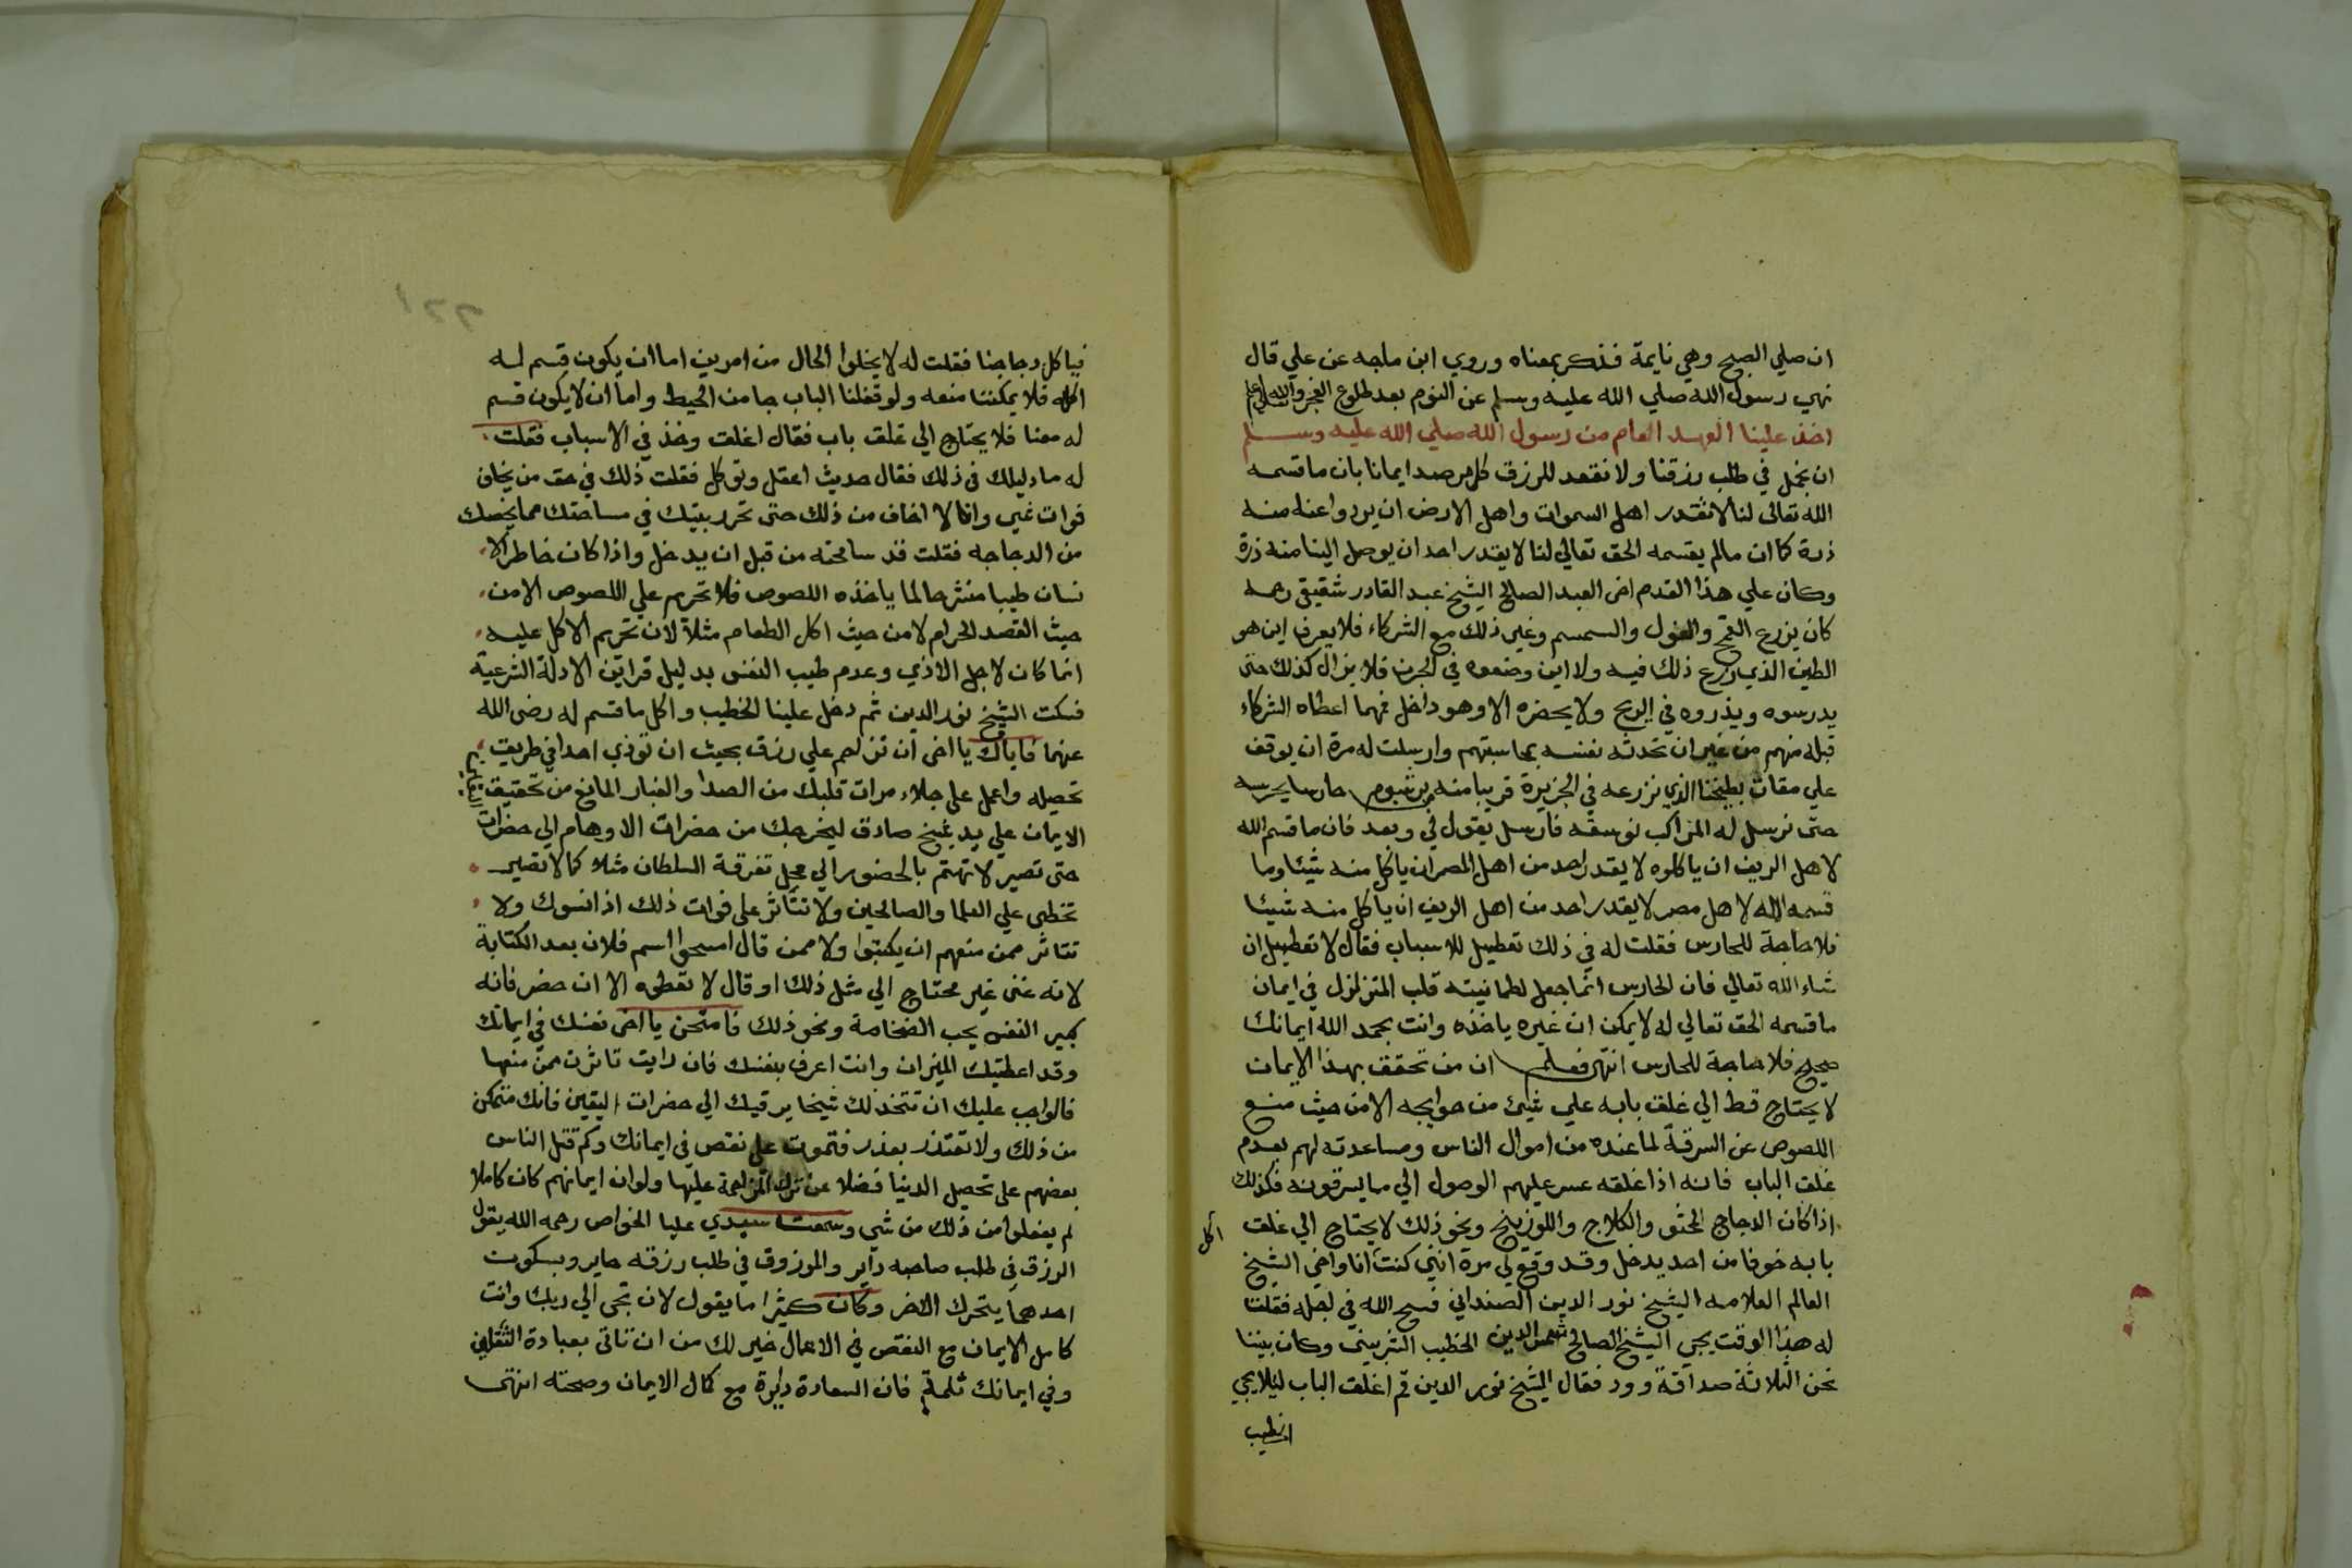 ان صلي الصبح وهي نايمة فذكر بمعناه وروي ابن ماجه عن علي قال
نهي رسول الله صلي الله عليه وسلم عن النوم بعد طلوع الفجر والله اعلم
اخذ علينا العهد العام من رسول الله صلي الله عليه وسلم
ان نجمل في طلب رزقنا ولا نقعد للرزق كل مرصد ايمانا بان ما قسمه
الله تعالى لنا لا تقدر اهل السموات واهل الارض ان يردوا عنا منه
ذرة كما ان مالم يقسمه الحق تعالي لنا لا يقدر احد ان يوصل الينا منه ذرة
وكان علي هذا القدم اخى العبد الصالح الشيخ عبد القادر شقيقى رحمه
كان يزرع القمح والفول والسمسم وغير ذلك مع الشركاء فلا يعرف اين هو
الطين الذي زرع ذلك فيه ولا اين وضعوه في الجرن فلا يزال كذلك حتى
يدرسوه ويذروه في الريح ولا يحضره الا وهو داخل فمهما اعطاه الشركاء
قبله منهم من غير ان تحدثه نفسه بمحاسبتهم وارسلت له مرة ان يوقف
علي مقات بطيخنا الذي نزرعه في الجزيرة قريبا منه حارسا يحرسه
حتى نرسل له المراكب نوسقه فارسل يقول لي وبعد فان ما قسم الله
لاهل الريف ان ياكلوه لا يقدر احد من اهل المصر ان ياكل منه شيئا وما
قسمه الله لاهل مصر لا يقدر احد من اهل الريف ان ياكل منه شيئا
فلا حاجة للحارس فقلت له في ذلك تعطيل للاسباب فقال لا تعطيل ان
شاء الله تعالي فان الحارس انما جعل لطمانينته قلب المتزلزل في ايمان
ما قسمه الحق تعالي له لا يمكن ان غيره ياخذه وانت بحمد الله ايمانك
صحيح فلا حاجة للحارس انتهى فعلم ان من تحقق بهذا الايمان
لا يحتاج قط الي غلق بابه علي شيئ من حوايجه الا من حيث منع
اللصوص عن السرقة لما عنده من اموال الناس ومساعدته لهم بعدم
غلق الباب فانه اذا غلقه عسر عليهم الوصول الي ما يسرقونه فكذلك
اذا كان الدجاج المحشو والكلاج واللوزينج ونحو ذلك لا يحتاج الي غلق
اكل
بابه خوفا من احد يدخل وقد وقع لي مرة انني كنت انا واخي الشيخ
العالم العلامه الشيخ نور الدين الصنداني فسح الله في اجله فقلت
له هذا الوقت يجي الشيخ الصالح شمس الدين الخطيب الشربيني وكان بيننا
نحن الثلاثة صداقة وود فقال الشيخ نور الدين قم اغلق الباب ليلا يجي
الخطيب
فياكل دجاجنا فقلت له لا يخلوا الحال من امرين اما ان يكون قسم له
اكله فلا يمكننا منعه ولو قفلنا الباب جا من الحيط واما ان لا يكون قسم
له معنا فلا يحتاج الي غلق باب فقال اغلق وخذ في الاسباب فقلت
له ما دليلك في ذلك فقال حديث اعقل وتوكل فقلت ذلك في حق من يخاف
فوات غير وانا لا اخاف من ذلك حتى تحرر بيتك في مسامحتك مما يخصك
من الدجاجه فقلت قد سامحته من قبل ان يدخل واذا كان خاطر الا
نسان طيبا منشرحا لما ياخذه اللصوص فلا تحرم علي اللصوص الا من
حيث القصد الحرام لا من حيث اكل الطعام مثلا لان تحريم الاكل عليه
انما كان لاجل الاذي وعدم طيب النفس بدليل قراين الادلة الشرعية
فسكت الشيخ نور الدين ثم دخل علينا الخطيب واكل ما قسم له رضى الله
عنهما فاياك يا اخى ان تزاحم علي رزق بحيث ان توذي احدا في طريق
تحصيله واعمل على جلاء مرات قلبك من الصدا والغبار المانع من تحقيق
الايمان علي يد شيخ صادق ليخرجك من حضرات الاوهام الي حضرات
حتى تصير لا تهتم بالحضور الي محل تفرقة السلطان مثلا كما لا تصير
تخطى علي العلما والصالحين ولا تتاثر على فوات ذلك اذا نسوك ولا
تتاثر ممن منعهم ان يكتبوا ولا ممن قال امسحوا اسم فلان بعد الكتابة
لانه غنى غير محتاج الي مثل ذلك او قال لا تعطوه الا ان حضر فانه
كبير النفس يحب الضخامة ونحو ذلك فامتحن يا اخى نفسك في ايمانك
وقد اعطيتك الميزان وانت اعرف بنفسك فان رايت تاثرت ممن منعها
فالواجب عليك ان تتخذ لك شيخا يرقيك الي حضرات اليقين فانك متمكن
من ذلك ولا تعتذر بعذر فتموت على نقص في ايمانك وكم قتل الناس
بعضهم على تحصيل الدنيا فضلا عن ترك المزاحمة عليها ولو ان ايمانهم كان كاملا
لم يفعلوا من ذلك من شي وسمعت سيدي عليا الخواص رحمه الله يقول
الرزق في طلب صاحبه داير والمرزوق في طلب رزقه حاير وبسكون
احدهما يتحرك الاخر وكان كثيرا ما يقول لان تجى الي ربك وانت
كامل الايمان مع النقص في الاعمال خير لك من ان تاتى بعبادة الثقلين
وفي ايمانك ثلمة فان السعادة دايرة مع كمال الايمان وصحته انتهى